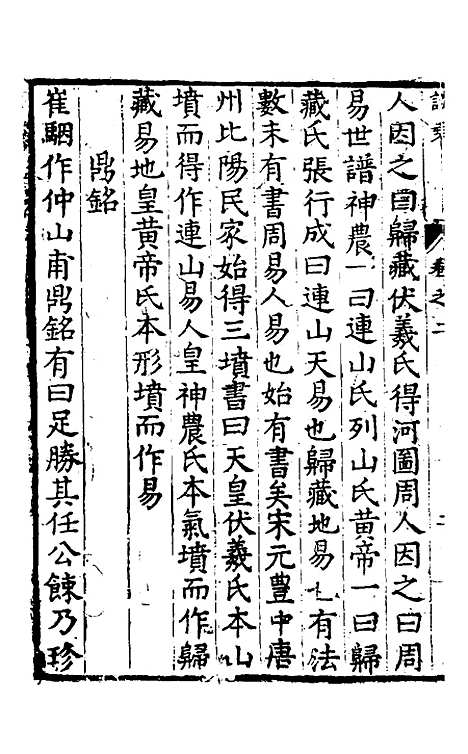 卷之二
人因之曰歸藏伏羲氏得河圖周人因之曰周
易世譜神農一曰連山氏列山氏黃帝一曰歸
藏氏張行成曰連山天易也歸藏地易也有法
數未有書周易人易也始有書矣宋元豊中唐
州比陽民家始得三墳書曰天皇伏羲氏本山
墳而得作連山易人皇神農氏本氣墳而作歸
藏易地皇黃帝氏本形墳而作易
鼎銘
崔駰作仲山甫鼎銘有曰足勝其任公餗乃珍